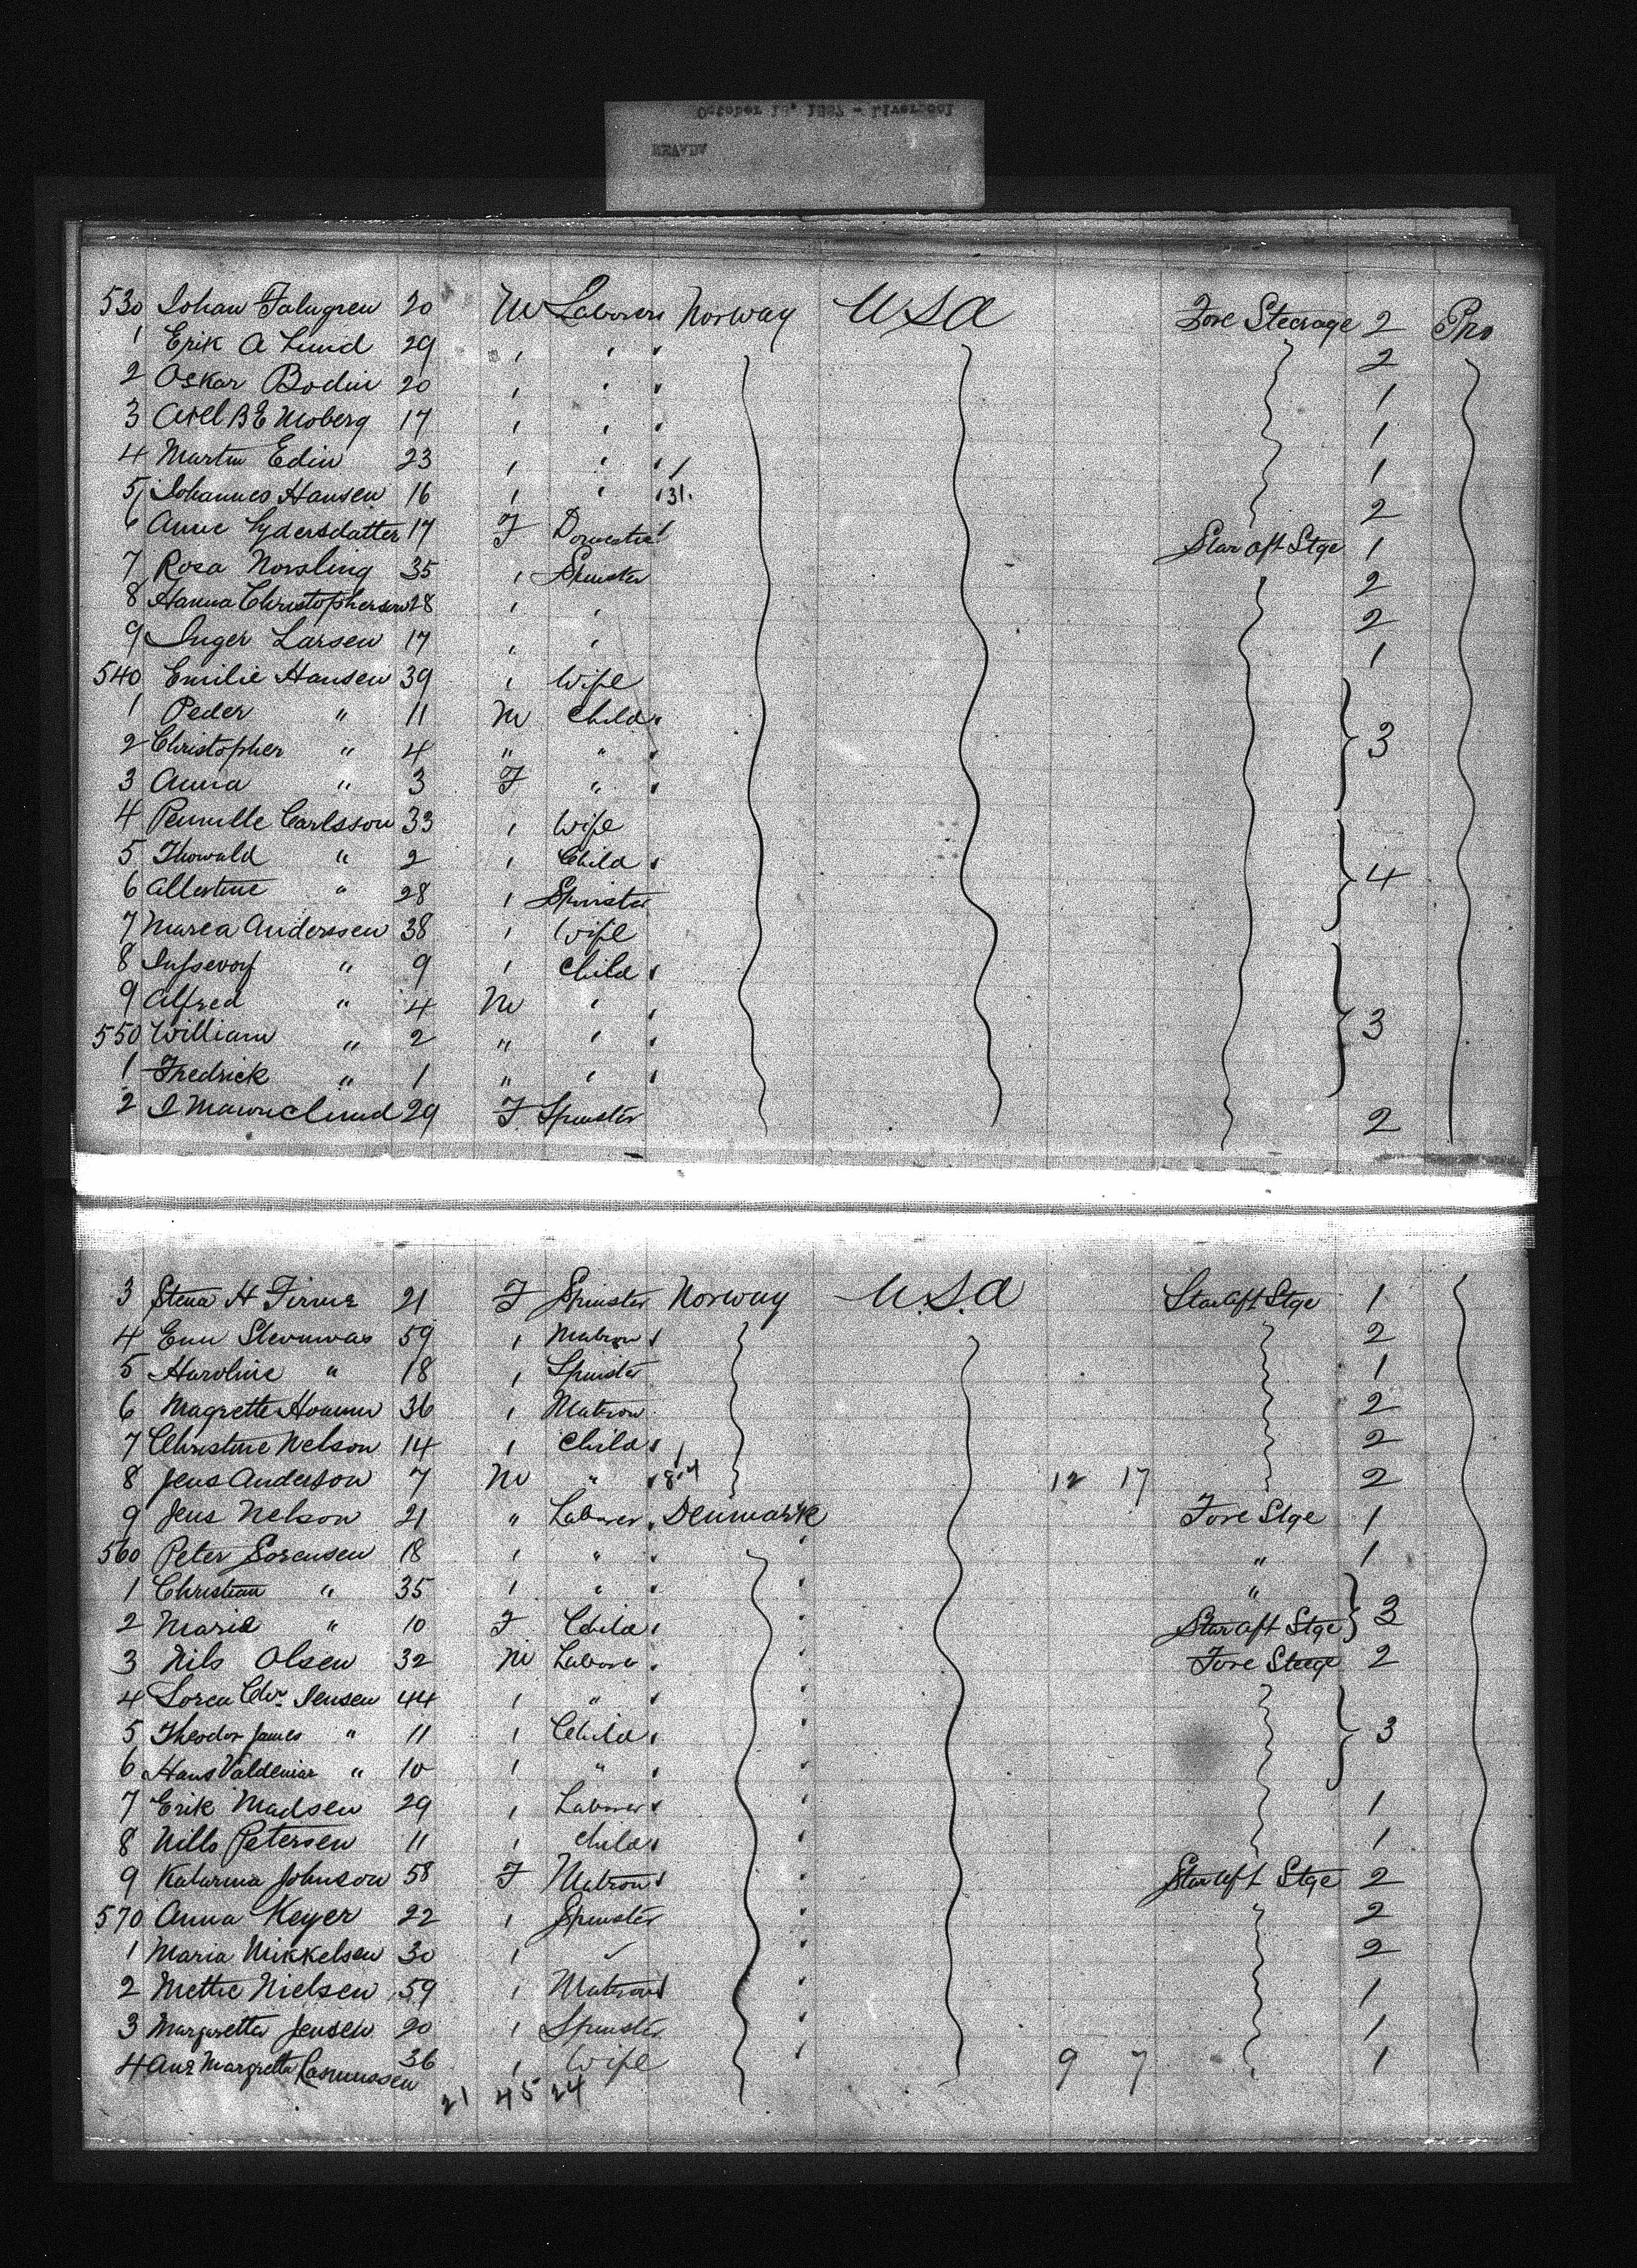 October 19, 1887 - Liverpool
530 Johan Falugren 20 M Laborer Norway USA Fore Steerage 2 Pro
1 Erik A Lund 29 " " 2
2 Oskar Bodin 20 " " 1
3 Axel B E Moberg 17 " " 1
4 Martin Edin 23 " " 1
5 Johannes Hansen 16 " " 31. 2
6 Anne 17 F Domestic Star aft Stge 1
7 Rosa Norsling 35 " Spinster 2
8 Hanna Christophersen 28 " " 2
9 Inger Larsen 17 " " 1
540 Emilie Hansen 39 " Wife
1 Peder " 11 M Child
2 Christopher " 4 " " 3
3 Anna " 3 F "
4 Pernille Carlsson 33 " Wife
5 Thorvald " 2 " Child
6 " 28 " Spinster 4
7 Marea Anderssen 38 " Wife
8 " 9 " Child
9 Alfred " 4 M "
550 William " 2 " " 3
1 Fredrick " 1 " "
2 29 F Spinster 2
3 Stena H 21 F Spinster Norway U.S.A Star aft Stge 1
4 59 " Matron 2
5 " 18 " Spinster 1
6 Magrette 36 " Matron 2
7 Christine Nelson 14 " Child 2
8 Jens Anderson 7 M " 8.4 12 17 2
9 Jens Nelson 21 " Laborer Denmark Fore Stge 1
560 Peter Sorensen 18 " " " 1
1 Christian " 35 " " "
2 Marie " 10 F Child Star aft Stge 3
3 Nils Olsen 32 M Laborer Fore Steege 2
4 Soren Chr. Jensen 44 " "
5 Theodor James " 11 " Child 3
6 Hans Valdemar " 10 " "
7 Erik Madsen 29 " Laborer 1
8 Nills Petersen 11 " Child 1
9 Katarina Johnson 58 F Matron Star aft Stge 2
570 Anna Keyer 22 " Spinster 2
1 Maria Mikkelsen 30 " " 2
2 Mettie Nielsen 59 " Matron 1
3 Margaretta Jensen 20 " Spinster 1
4 Ane Margretta Rasmussen 36 " Wife 9 7 1
21 45 24